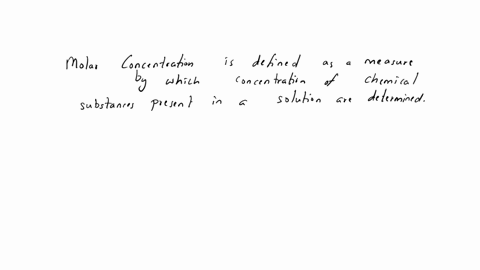 Molar Concentration is defined as a measure
by which concentration of chemical
substances present in a solution are determined.